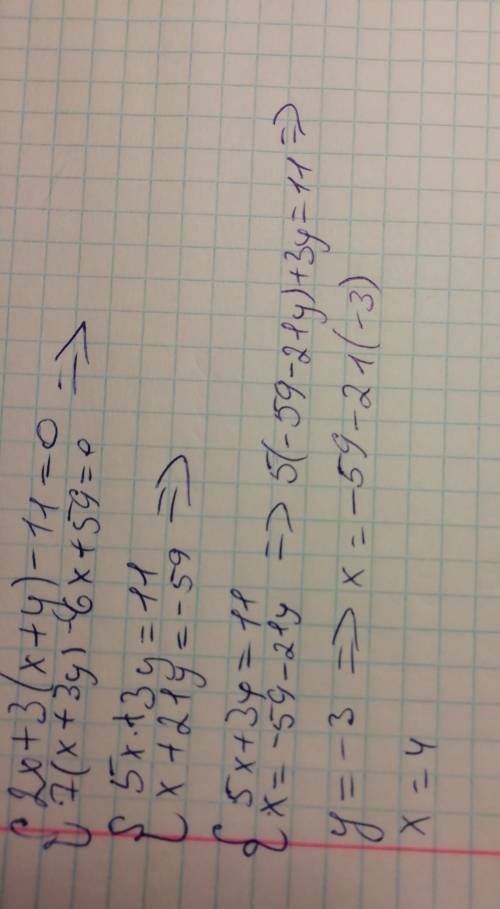 { 2x+3(x+y)-11=0
7(x+3y)-6x+59=0 =>
{ 5x+3y=11
x+21y=-59 =>
{ 5x+3y=11
x=-59-21y => 5(-59-21y)+3y=11=>
y=-3 => x=-59-21(-3)
x=4